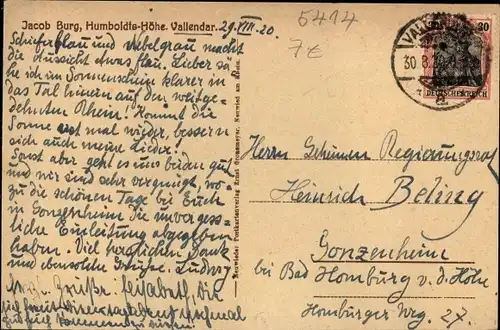 Jacob Burg, Humboldts-Höhe, Vallendar. 29.VIII.20.
5414
7£
Schieferblau und Nebelgrau macht
die Aussicht etwas flau. Lieber sä-
he ich im Sonnenschein klarer in
das Tal hinein auf den weitge-
dehnten Rhein! Kommt die
Sonne erst mal wieder, bessern
sich auch meine Lieder!
Sonst aber geht es uns beiden gut
und wir sind sehr vergnügt, wo-
zu die schönen Tage bei Euch
in Gonzenheim die unverges-
sliche Einleitung abgegeben
haben. Viel herzlichen Dank
und ebensolche Grüße. Ludwig
Grüße Elisabeth, die
Neuwied: Postkartenverlag Ernst Neuwied am Rhein.
VALLENDAR
30.8.20
30
DEUTSCHES REICH
Herrn Geheimen Regierungsrat
Heinrich Beling
Gonzenheim
bei Bad Homburg v. d. Höhe
Homburger Weg 27.